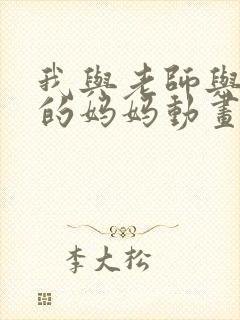 我與老師與
的媽媽動畫
李大松